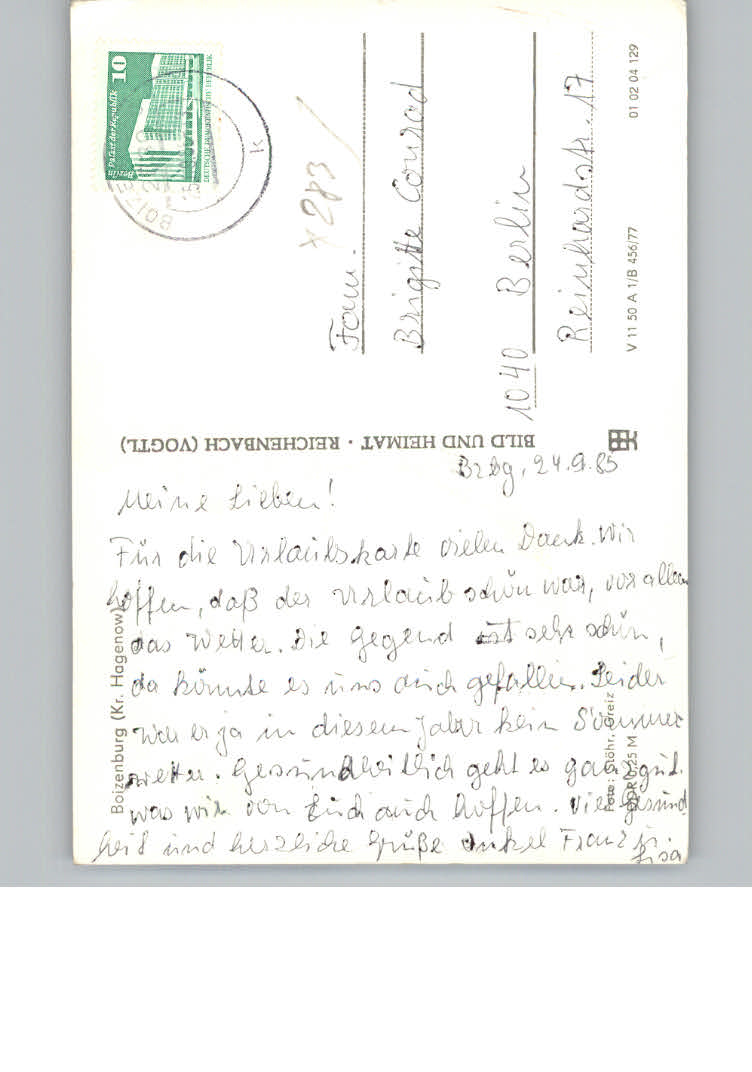 10
Berlin Palast der Republik
DEUTSCHE DEMOKRATISCHE REPUBLIK
BOIZE
k
x 283
Fam.
Brigitte Conrad
1040 Berlin
Reinhardstr. 17
V 11 50 A 1/B 456/77
01 02 04 129
BILD UND HEIMAT · REICHENBACH (VOGTL)
Bzbg, 24.9.85
Meine Lieben!
Für die Urlaubskarte vielen Dank. Wir
hoffen, daß der Urlaub schön war, vor allem
das Wetter. Die Gegend ist sehr schön,
da könnte es uns auch gefallen. Leider
war er ja in diesem Jahr kein Sommer
wetter. Gesundheitlich geht es ganz gut.
was wir von Euch auch hoffen. Viel Gesund
heit und herzliche Grüße Onkel Franz u.
Lisa
Boizenburg (Kr. Hagenow)
Foto: Stöhr, Greiz
DDR 0,25 M